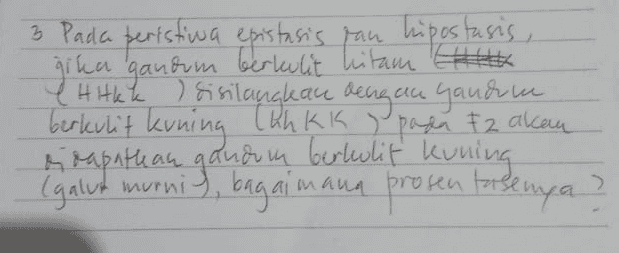 3 Pada peristiwa epistasis dan hipostasis,
jika gandum berkulit hitam
(HHkk) disilangkan dengan gandum
berkulit kuning (hhKK) pada F2 akan
di dapatkan gandum berkulit kuning
(galur murni), bagaimana prosentasenya?